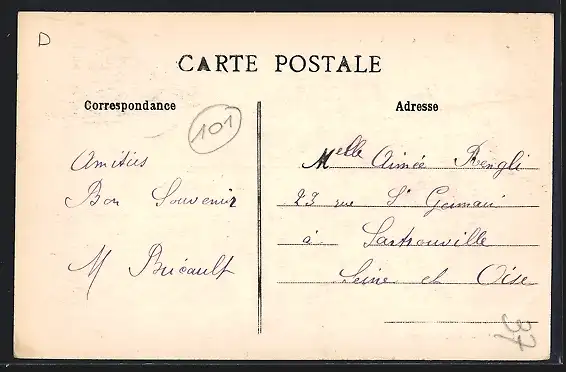 D
CARTE POSTALE
Correspondance
101
Adresse
Amitiés
Bon Souvenir
M Bricault
Melle Aimée Rengli
23 rue St Germain
à Sartrouville
Seine et Oise
37